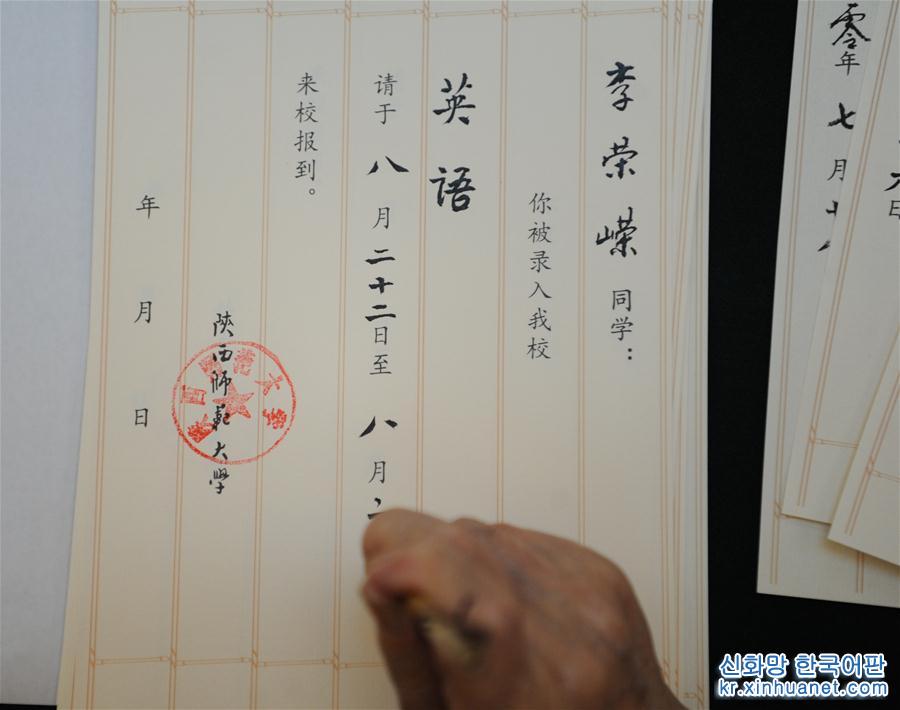 李荣嵘同学：
你被录入我校
英语
请于八月二十二日至八月二
来校报到。
陝西師範大學
年月日
零年七月
日
신화망 한국어판
kr.xinhuanet.com